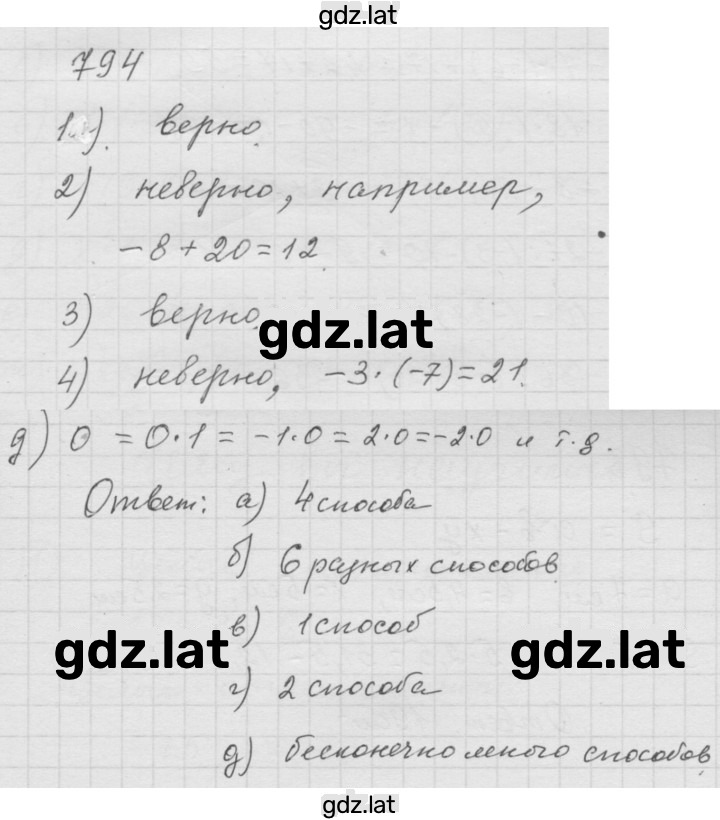 gdz.lat
794
1) верно.
2) неверно, например,
-8+20=12.
3) верно.
gdz.lat
4) неверно, -3·(-7)=21.
д) 0 = 0·1 = -1·0 = 2·0=-2·0 и т.д.
Ответ: а) 4 способа
б) 6 разных способов
в) 1 способ
gdz.lat gdz.lat
г) 2 способа
д) бесконечно много способов.
gdz.lat